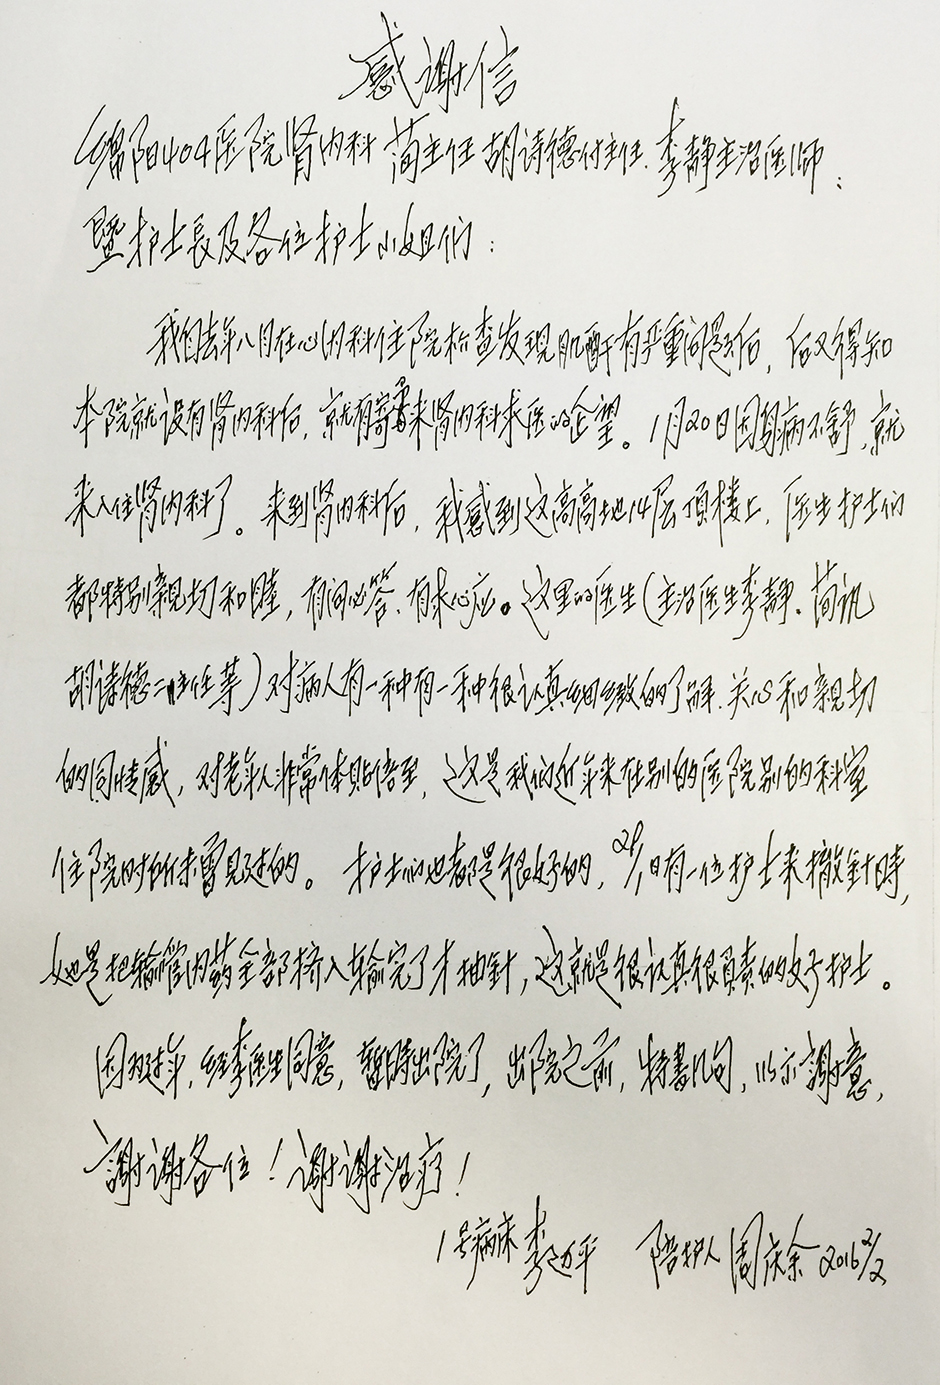 感谢信
绵阳404医院肾内科 简主任 胡诗德付主任、李静主治医师：
暨护士长及各位护士小姐们：
我自去年八月在心内科住院检查发现肌酐有严重问题后，后又得知
本院就设有肾内科后，就有来肾内科求医的企望。1月20日因身病不舒，就
来入住肾内科了。来到肾内科后，我感到这高高地14层顶楼上，医生护士们
都特别亲切和睦，有问必答、有求必应。这里的医生（主治医生李静、简讯
胡诗德二主任等）对病人有一种有一种很认真细致的了解、关心和亲切
的同情感，对老年人非常体贴倍至，这是我们近年来在别的医院别的科室
住院时所未曾见过的。护士们也都是很好的，29/1日有一位护士来撤针时，
她是把输管内药全部挤入输完了才抽針，这就是很认真很负责的好护士。
因过年，经李医生同意，暂時出院了，出院之前，特書几句，以示謝意，
謝谢各位！谢谢治疗！
1号病床 李边平 陪护人 周庆余 2016 2/2